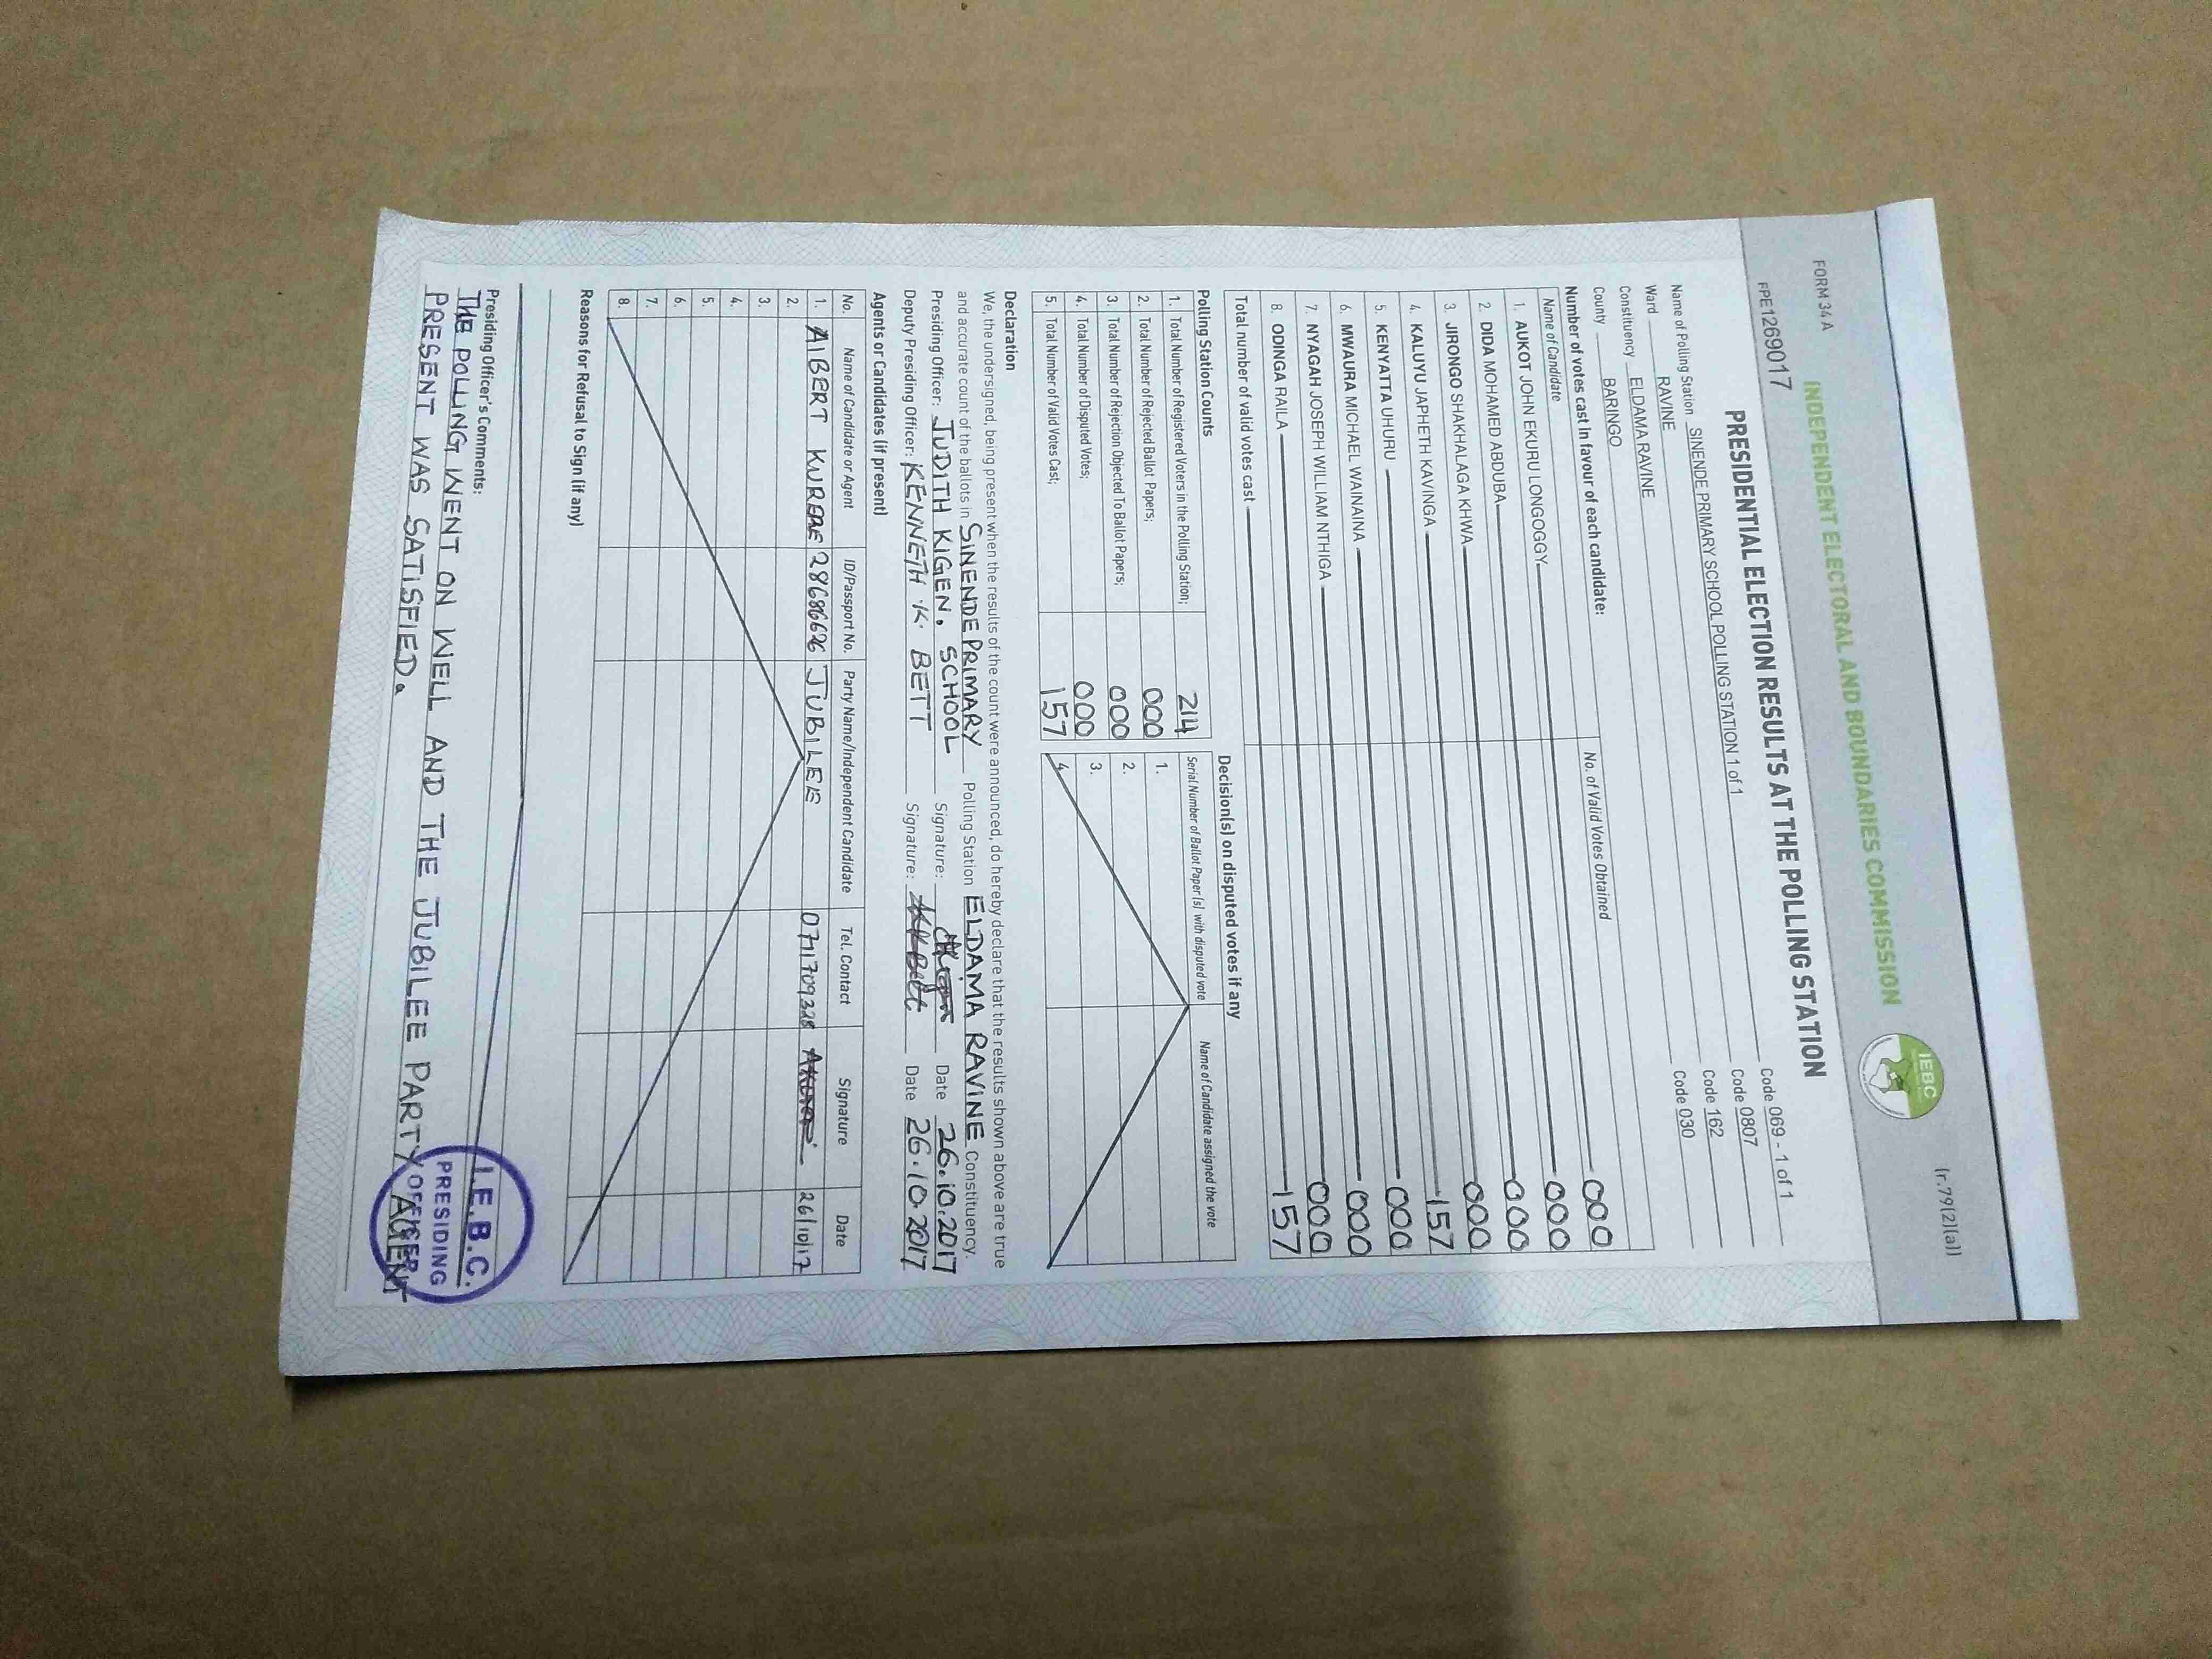 FORM 34 A
(r.79(2)(a))
INDEPENDENT ELECTORAL AND BOUNDARIES COMMISSION
IEBC
FPE1269017
PRESIDENTIAL ELECTION RESULTS AT THE POLLING STATION
Name of Polling Station SINENDE PRIMARY SCHOOL POLLING STATION 1 of 1 Code 069 - 1 of 1
Ward RAVINE Code 0807
Constituency ELDAMA RAVINE Code 162
County BARINGO Code 030
Number of votes cast in favour of each candidate:
Name of Candidate No. of Valid Votes Obtained
1. AUKOT JOHN EKURU LONGOGGY 000
2. DIDA MOHAMED ABDUBA 000
3. JIRONGO SHAKHALAGA KHWA 000
4. KALUYU JAPHETH KAVINGA 000
5. KENYATTA UHURU 157
6. MWAURA MICHAEL WAINAINA 000
7. NYAGAH JOSEPH WILLIAM NTHIGA 000
8. ODINGA RAILA 000
Total number of valid votes cast 157
Polling Station Counts
1. Total Number of Registered Voters in the Polling Station; 214
2. Total Number of Rejected Ballot Papers; 000
3. Total Number of Rejection Objected To Ballot Papers; 000
4. Total Number of Disputed Votes; 000
5. Total Number of Valid Votes Cast; 157
Decision(s) on disputed votes if any
Serial Number of Ballot Paper (s) with disputed vote Name of Candidate assigned the vote
1.
2.
3.
4.
Declaration
We, the undersigned, being present when the results of the count were announced, do hereby declare that the results shown above are true
and accurate count of the ballots in SINENDE PRIMARY SCHOOL Polling Station ELDAMA RAVINE Constituency.
Presiding Officer: JUDITH KIGEN. Signature: Date 26.10.2017
Deputy Presiding Officer: KENNETH .K. BETT Signature: KKBett Date 26.10.2017
Agents or Candidates (if present)
No. Name of Candidate or Agent ID/Passport No. Party Name/Independent Candidate Tel. Contact Signature Date
1. AlBERT 28686626 JUBILEE 0711709328 26/10/17
2.
3.
4.
5.
6.
7.
8.
Reasons for Refusal to Sign (if any)
Presiding Officer's Comments:
THE POLLING WENT ON WELL AND THE JUBILEE PARTY AGENT
PRESENT WAS SATISFIED.
I.E.B.C.
PRESIDING
OFFICER